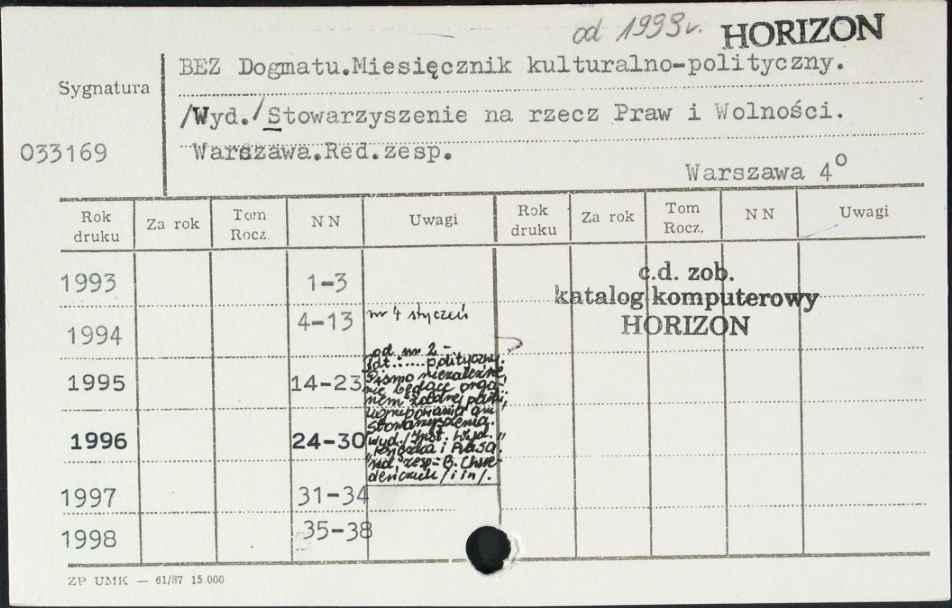 od 1993r. HORIZON
BEZ Dogmatu.Miesięcznik kulturalno-polityczny.
Sygnatura
/Wyd./Stowarzyszenie na rzecz Praw i Wolności.
033169
Warszawa.Red.zesp.
Warszawa 4°
Rok druku Za rok Tom Rocz. N N Uwagi Rok druku Za rok Tom Rocz. N N Uwagi
1993 1-3
c.d. zob.
katalog komputerowy
HORIZON
1994 4-13 nr 4 styczeń
od nr 2 -
pdt.:.... polityczny.
Pismo niezależne,
nie będące orga-
nem żadnej partii,
ugrupowania ani
stowarzyszenia.
Wyd./Inst. Wyd.
"Książka i Prasa"
red. zesp.: B.
/i in/.
1995 14-23
1996 24-30
1997 31-34
1998 35-38
ZP UMK — 61/87 15.000